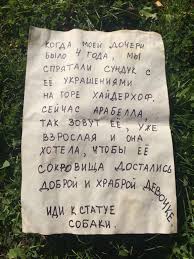 КОГДА МОЕЙ ДОЧЕРИ
БЫЛО 4 ГОДА, МЫ
СПРЯТАЛИ СУНДУК С
ЕЁ УКРАШЕНИЯМИ
НА ГОРЕ ХАЙДЕРХОФ.
СЕЙЧАС АРАБЕЛЛА,
ТАК ЗОВУТ ЕЁ, УЖЕ
ВЗРОСЛАЯ И ОНА
ХОТЕЛА, ЧТОБЫ ЕЁ
СОКРОВИЩА ДОСТАЛИСЬ
ДОБРОЙ И ХРАБРОЙ ДЕВОЧКЕ.
ИДИ К СТАТУЕ
СОБАКИ.